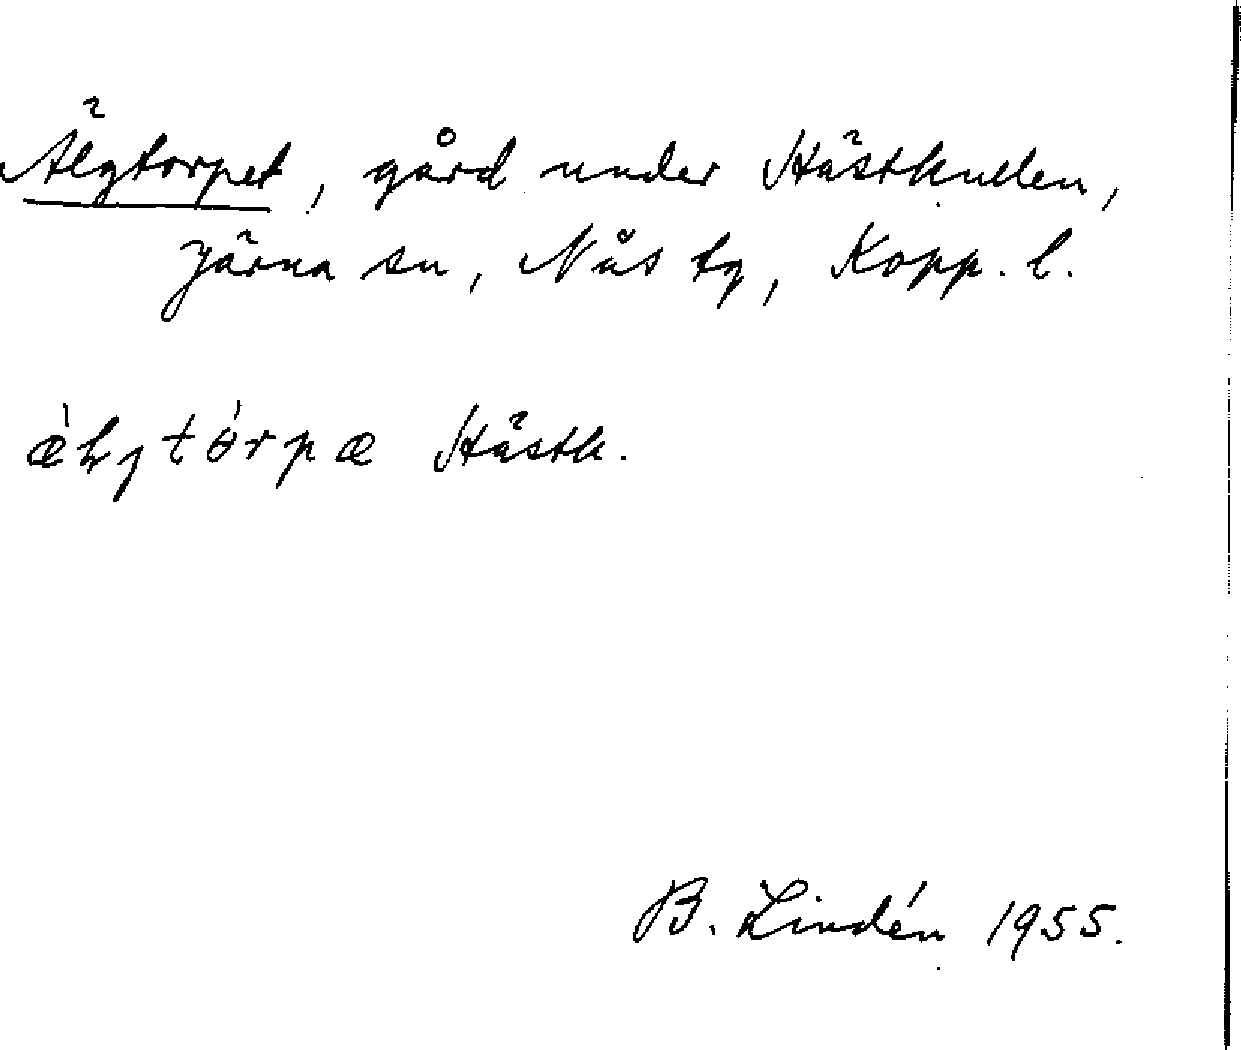 Älgtorpet, gård under Hästkullen,
Järna sn, Nås tg, Kopp. l.
Hästk.
B. Lindén 1955.